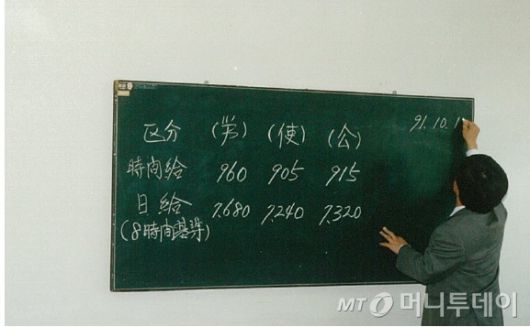 91. 10. 1
区分 (労) (使) (公)
時间給 960 905 915
日給 7,680 7,240 7,320
(8時间基準)
MT 머니투데이